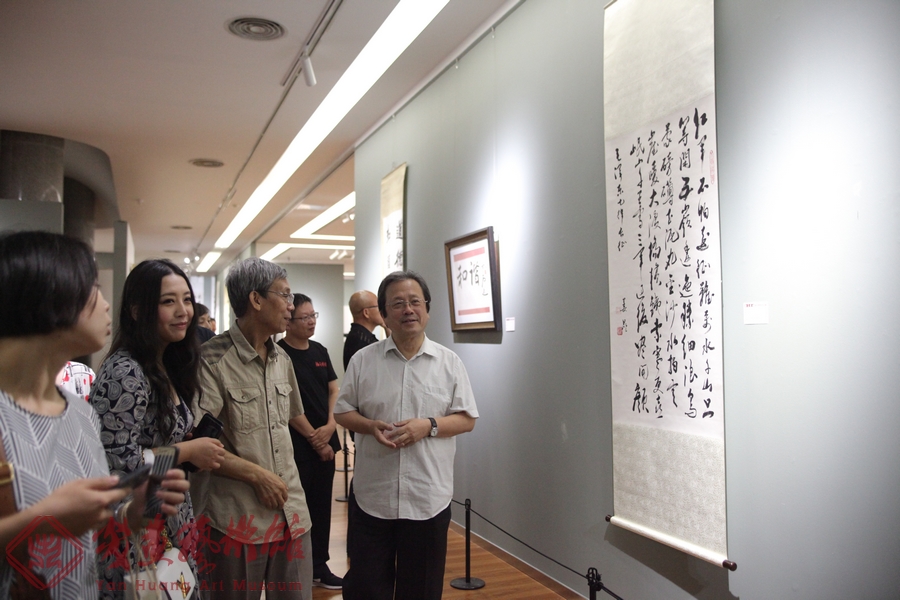 红军不怕远征难万水千山只
等闲五岭逶迤腾细浪乌
蒙磅礴走泥丸金沙水拍云
崖暖大渡桥横铁索寒更喜
岷山千里雪三军过后尽开颜
毛泽东七律长征
和谐
藝術館
Huang Art Museum